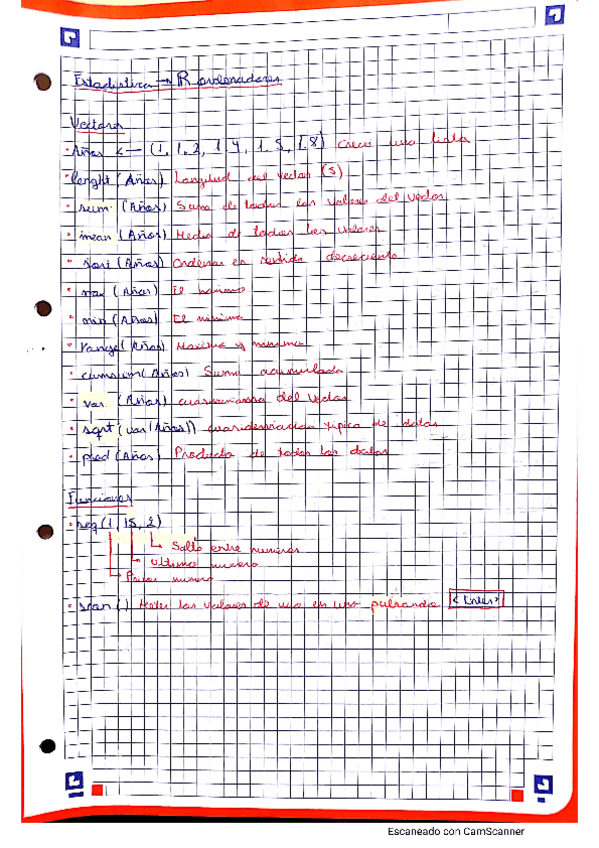 Estadística → R ordenadores
Vectores
· Años <— (1, 1.2, 1.4, 1.5, 1.8) Creas una lista
· lenght (Años) Longitud del vector (5)
· sum (Años) Suma de todos los valores del vector
· mean (Años) Media de todos los valores
· sort (Años) Ordenas en sentido decreciente
· max (Años) El máximo
· min (Años) El mínimo
· range (Años) Máximo y mínimo
· cumsum (Años) Suma acumulada
· var (Años) cuasivarianza del vector
· sqrt (var (Años)) cuasidesviacion típica de datos
· prod (Años) Producto de todos los datos
Funciones
· seq (1, 15, 2)
Salto entre numeros
Ultimo numero
Primer numero
· scan () Meter los valores de uno en uno pulsando <Enter>
Escaneado con CamScanner